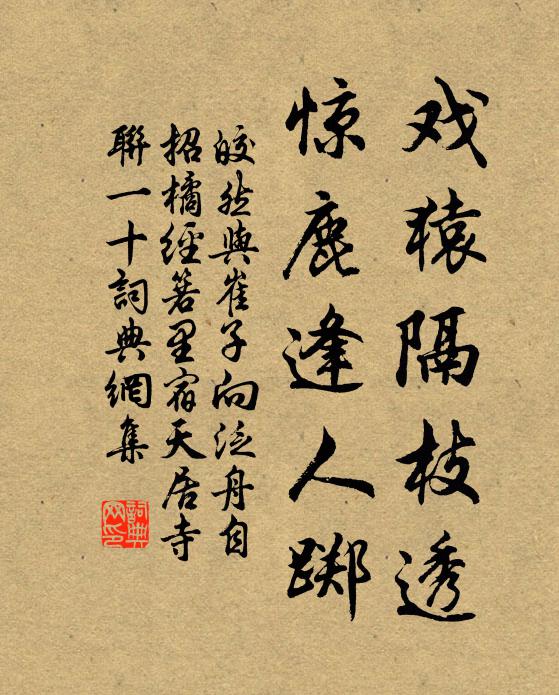 戏猿隔枝透
惊鹿逢人踯
皎然與崔子向泛舟自
招橘經箬里宿天居寺
聯一十詞典網集
詞典
网印